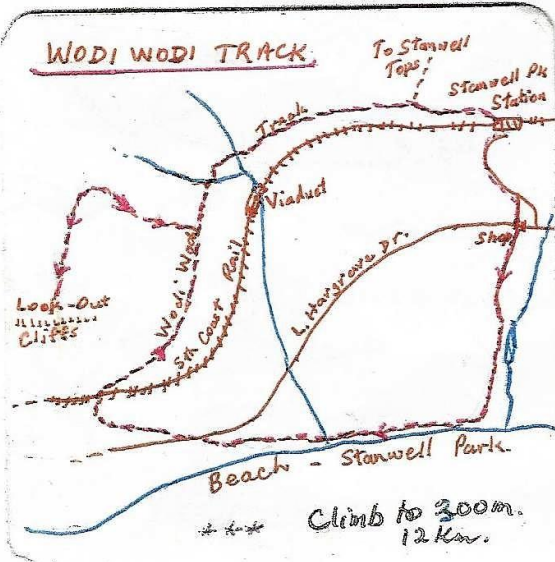 WODI WODI TRACK
To Stanwell
Tops
Stanwell Pk
Station
Track
Viaduct
Shop
L. Hargrave Dr.
Wodi Wodi
Sth Coast Rail
Look-Out
Cliffs
Beach - Stanwell Park.
*** Climb to 300m.
12 Km.